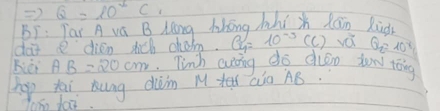 => Q = 10⁻⁶ C.
BT: Tại A và B trong không khí lần lượt
đặt 2 điện tích điểm. Q₁ = 10⁻⁵ (C) và Q₂ = 10⁻⁶
Biết AB = 20 cm. Tính cường độ điện tổng
hợp tại trung điểm M của AB.